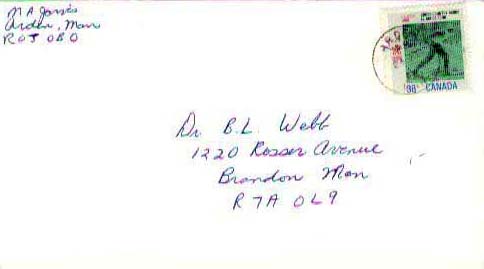 M A Jones
Arden, Man
R0J 0B0
38 CANADA
Dr. B.L. Webb
1220 Rosser Avenue
Brandon Man
R7A 0L9